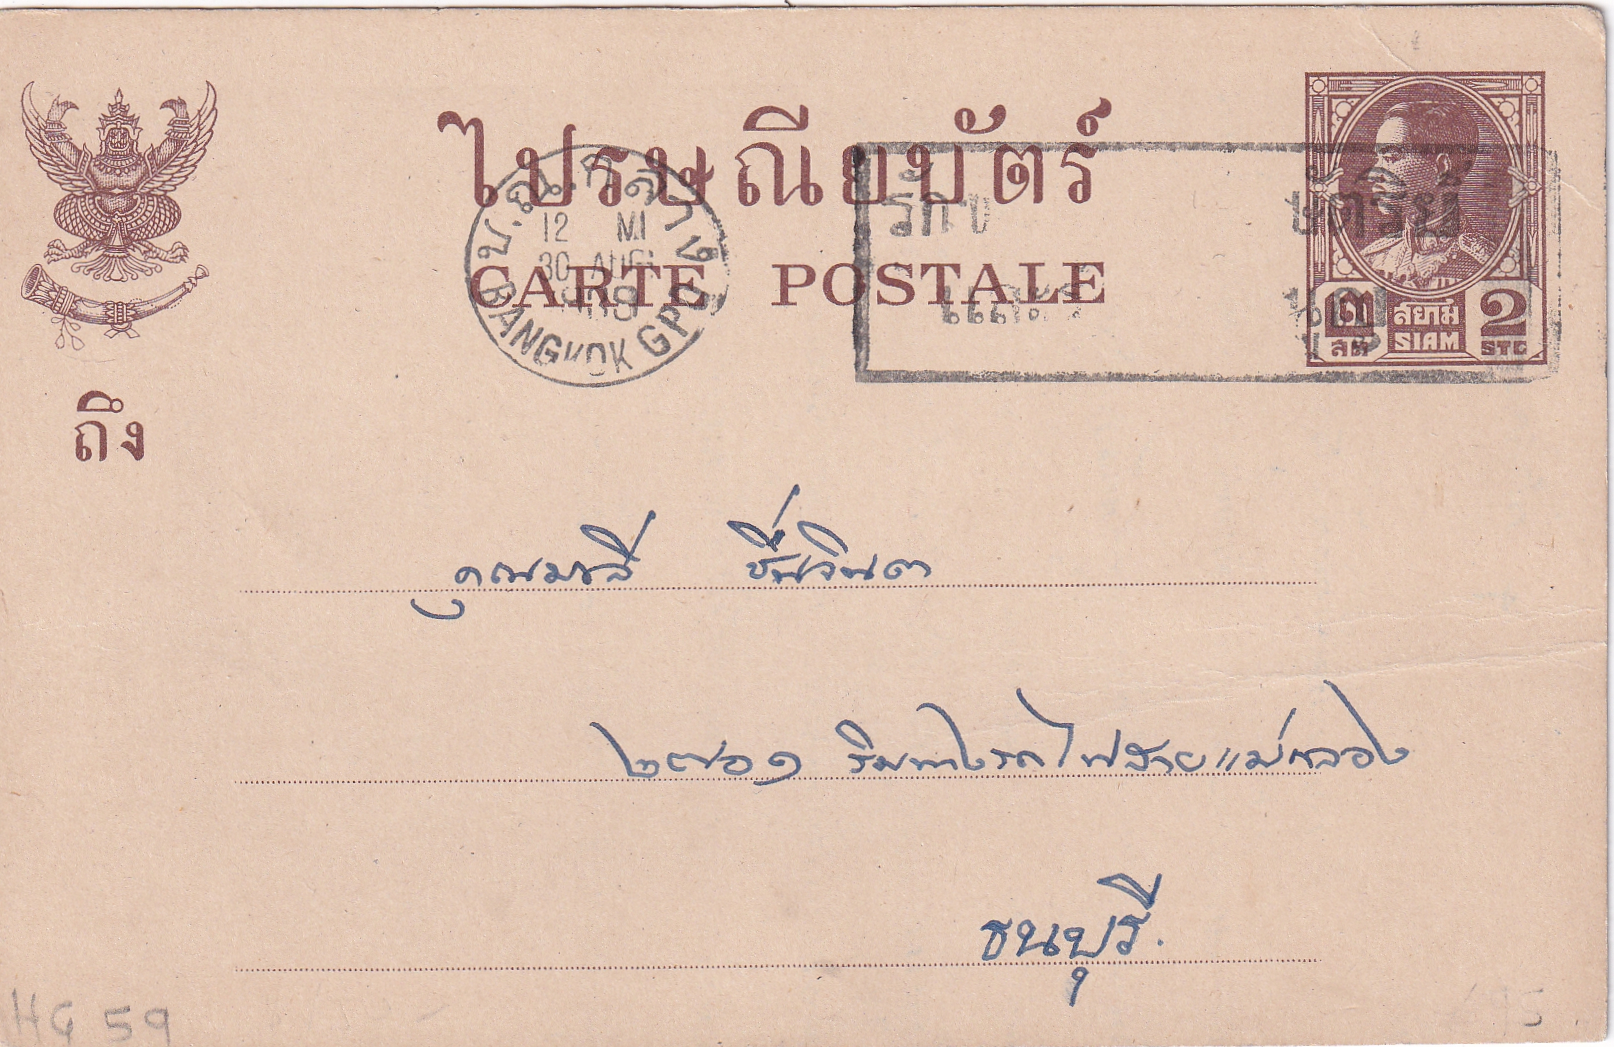 ไปรษณียบัตร์
CARTE POSTALE
ป.ณ.กลาง
12 MI
30 AUG
BANGKOK GPO
รักษ
๓ สต สยาม SIAM 2 STG
ถึง
คุณมาลี ชื่นจินดา
๒๗๐๑ ริมทางรถไฟสายแม่กลอง
ธนบุรี.
HG 59